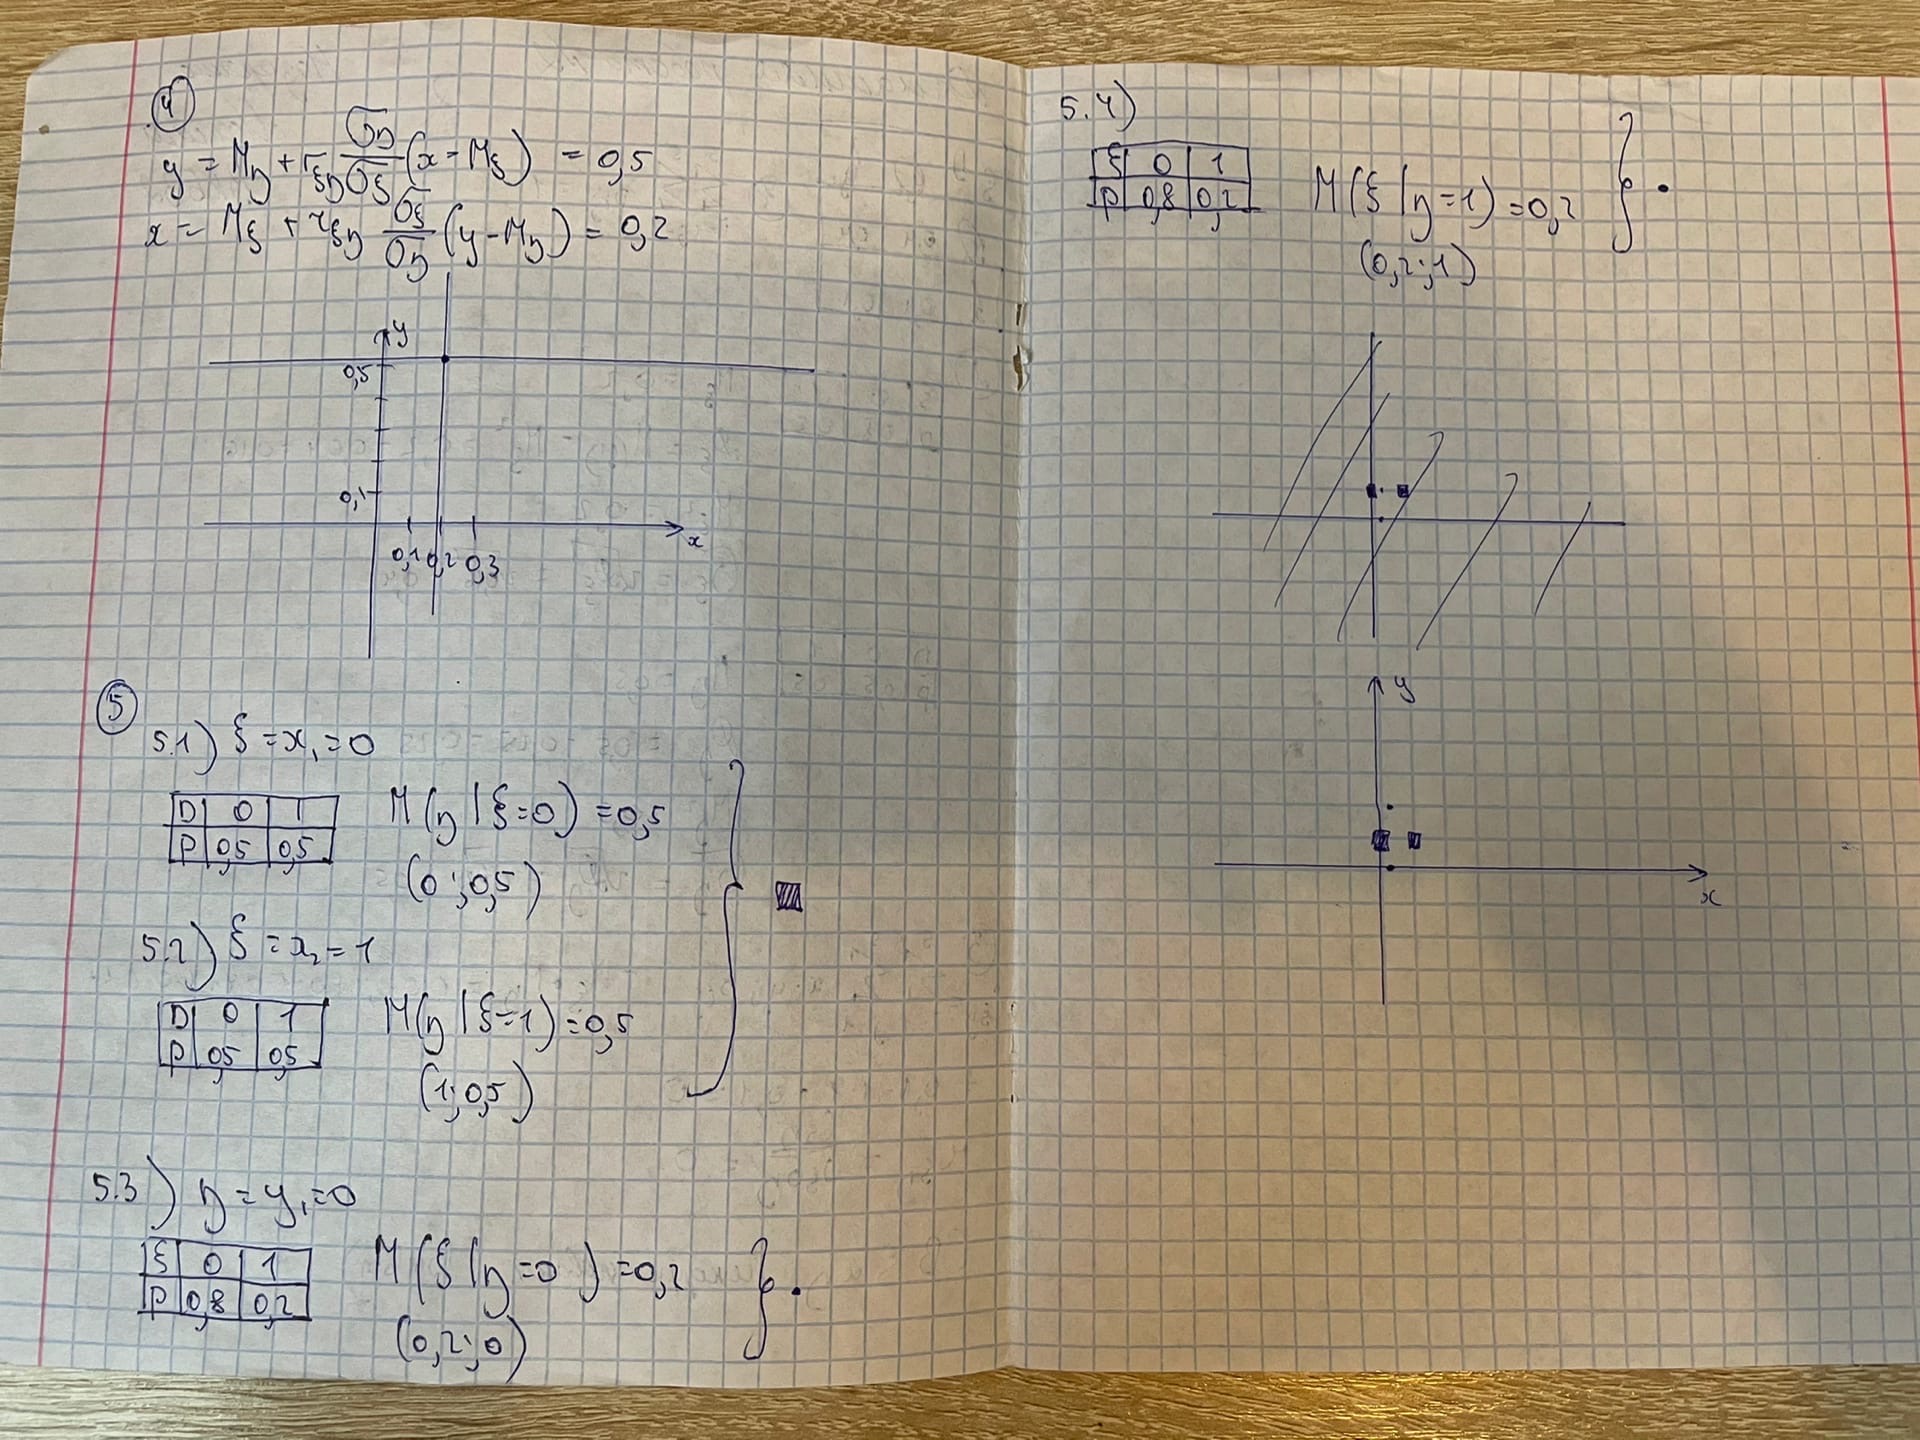 4
y = Mη + rξη ση/σξ (x - Mξ) = 0,5
x = Mξ + rξη σξ/ση (y - Mη) = 0,2
y
0,5
0,1
0,1 0,2 0,3
x
5
5.1) ξ = x₁ = 0
η 0 1
P 0,5 0,5
M(η | ξ=0) = 0,5
(0; 0,5)
5.2) ξ = x₂ = 1
η 0 1
P 0,5 0,5
M(η | ξ=1) = 0,5
(1; 0,5)
5.3) η = y₁ = 0
ξ 0 1
P 0,8 0,2
M(ξ | η=0) = 0,2
(0,2; 0)
5.4)
ξ 0 1
P 0,8 0,2
M(ξ | η=1) = 0,2
(0,2; 1)
y
x